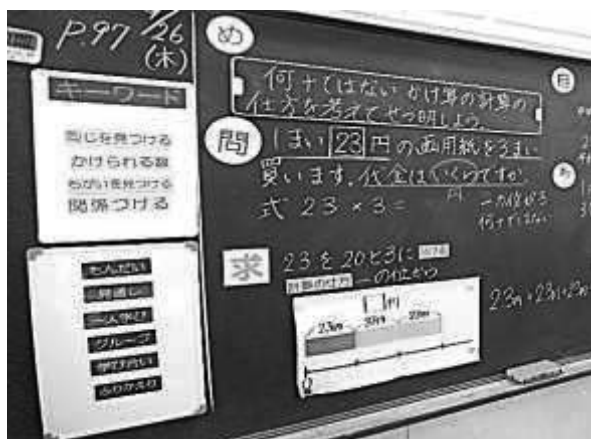 P.97
/26
(木)
キーワード
同じを見つける
かけられる数
ちがいを見つける
関係つける
もんだい
見通し
一人学び
グループ
学び合い
ふりかえり
め
何十ではないかけ算の計算の
仕方を考えてせつ明しよう。
問
1まい23円の画用紙を3まい
買います。代金はいくらですか
式 23×3=
円
一の位が3
何十ではない
求
23を20と3に分ける
計算の仕方 一の位から
□円
23円 23円 23円
0
23円+23円+23円